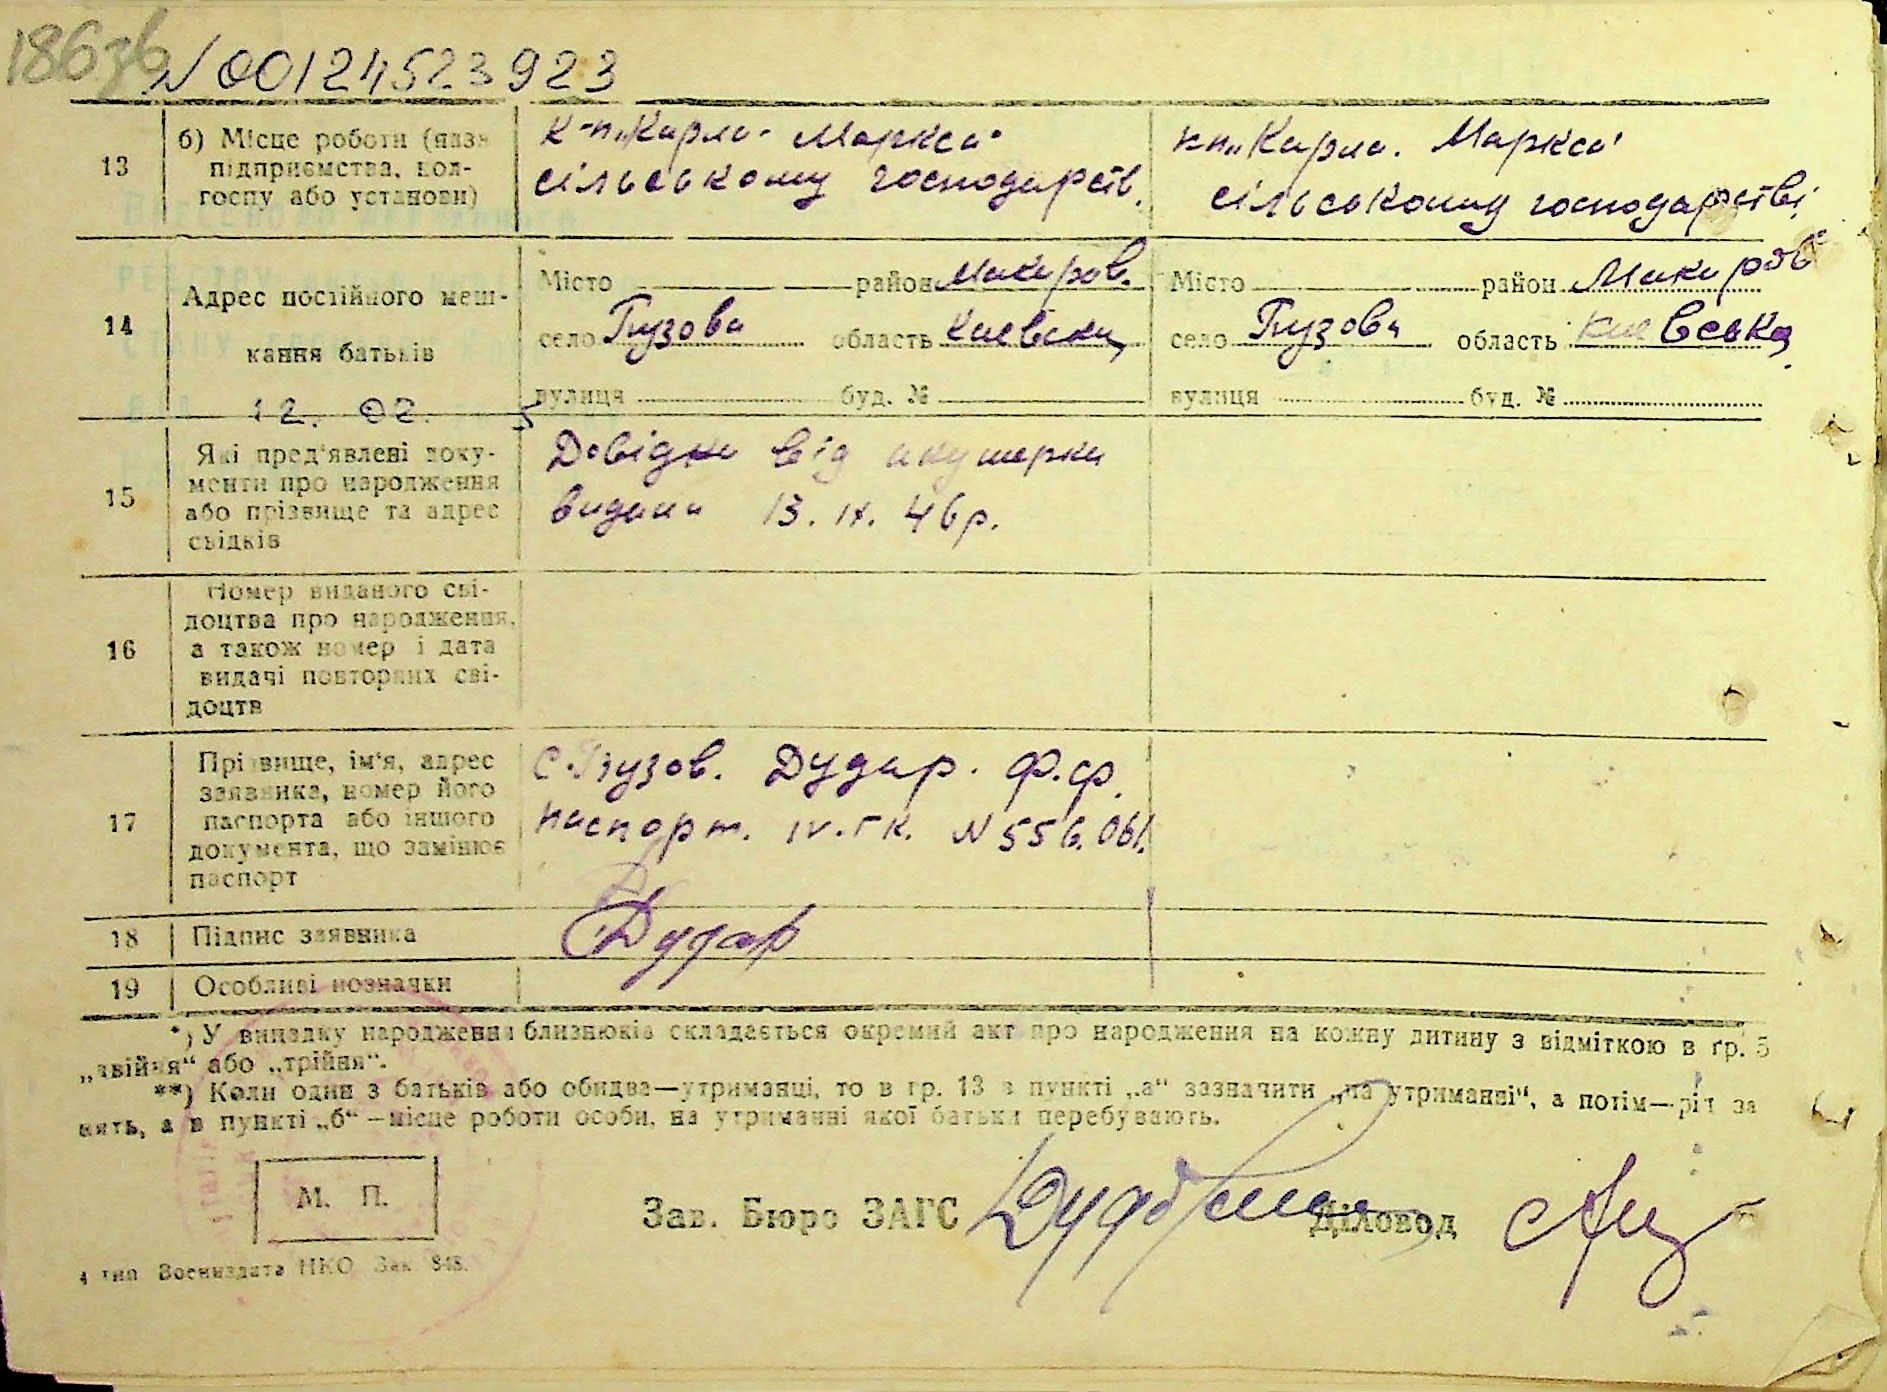 186зв N 00124523923
13 б) Місце роботи (назв підприємства, кол-госпу або установи) К-п „Карла - Маркса" сільському господарств. кп „Карла. Маркса" сільському господарстві
14 Адрес постійного меш-кання батьків
Місто район Макаров. Місто район Макаров
село Гузова область Киевська село Гузова область Киевська
вулиця буд. № вулиця буд. №
12. 02.
15 Які пред'явлені доку-менти про народження або прізвище та адрес свідків
Довідка від акушерки
видана 13. IX. 46р.
16 Номер виданого сві-доцтва про народження, а також номер і дата видачі повторних сві-доцтв
17 Прізвище, ім'я, адрес заявника, номер його паспорта або іншого документа, що замінює паспорт
с. Гузов. Дудар. Ф.Ф.
паспорт. IV. ГК. N 556.061.
18 Підпис заявника Дудар
19 Особливі позначки
*) У випадку народження близнюків складається окремий акт про народження на кожну дитину з відміткою в гр. 5
„двійня" або „трійня".
**) Коли один з батьків або обидва—утриманці, то в гр. 13 в пункті „а" зазначити „на утриманні", а потім—рід за
нять, а в пункті „б"—місце роботи особи, на утриманні якої батьки перебувають.
М. П.
Зав. Бюро ЗАГС Діловод
4 тип Воениздата НКО Зак 848.